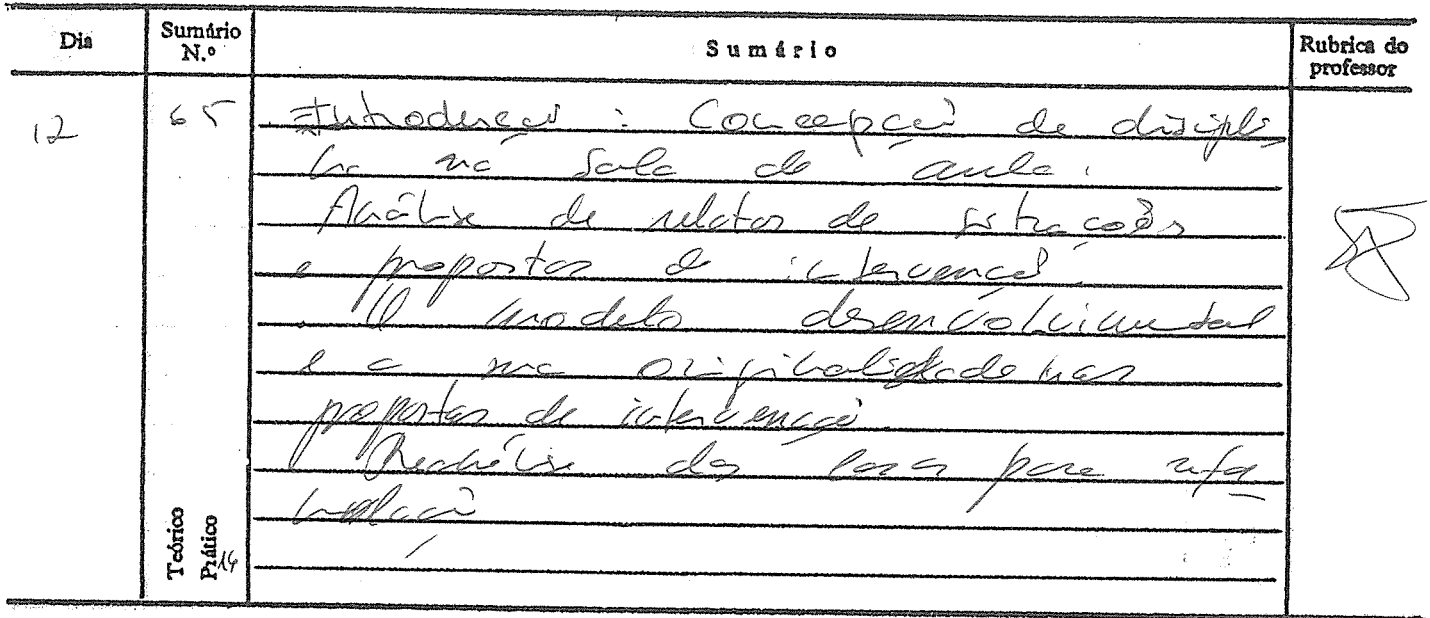 Dia
Sumário N.º
Sumário
Rubrica do professor
12
65
Introdução : Concepção de discipli
na na sala de aula.
Análise de relatos de situações
e propostas de intervenção.
O modelo desenvolvimental
e a sua originalidade nas
propostas de intervenção.
Reanálise dos casos para refor
mulação
Teórico
Prático 14